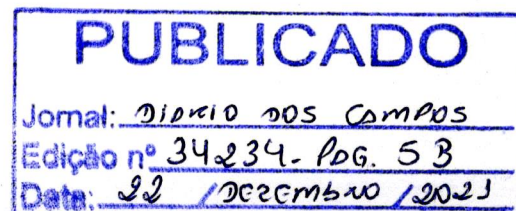 PUBLICADO
Jornal: DIARIO DOS CAMPOS
Edição nº 34234- PAG. 5B
Data: 22 / DEZEMBRO / 2023